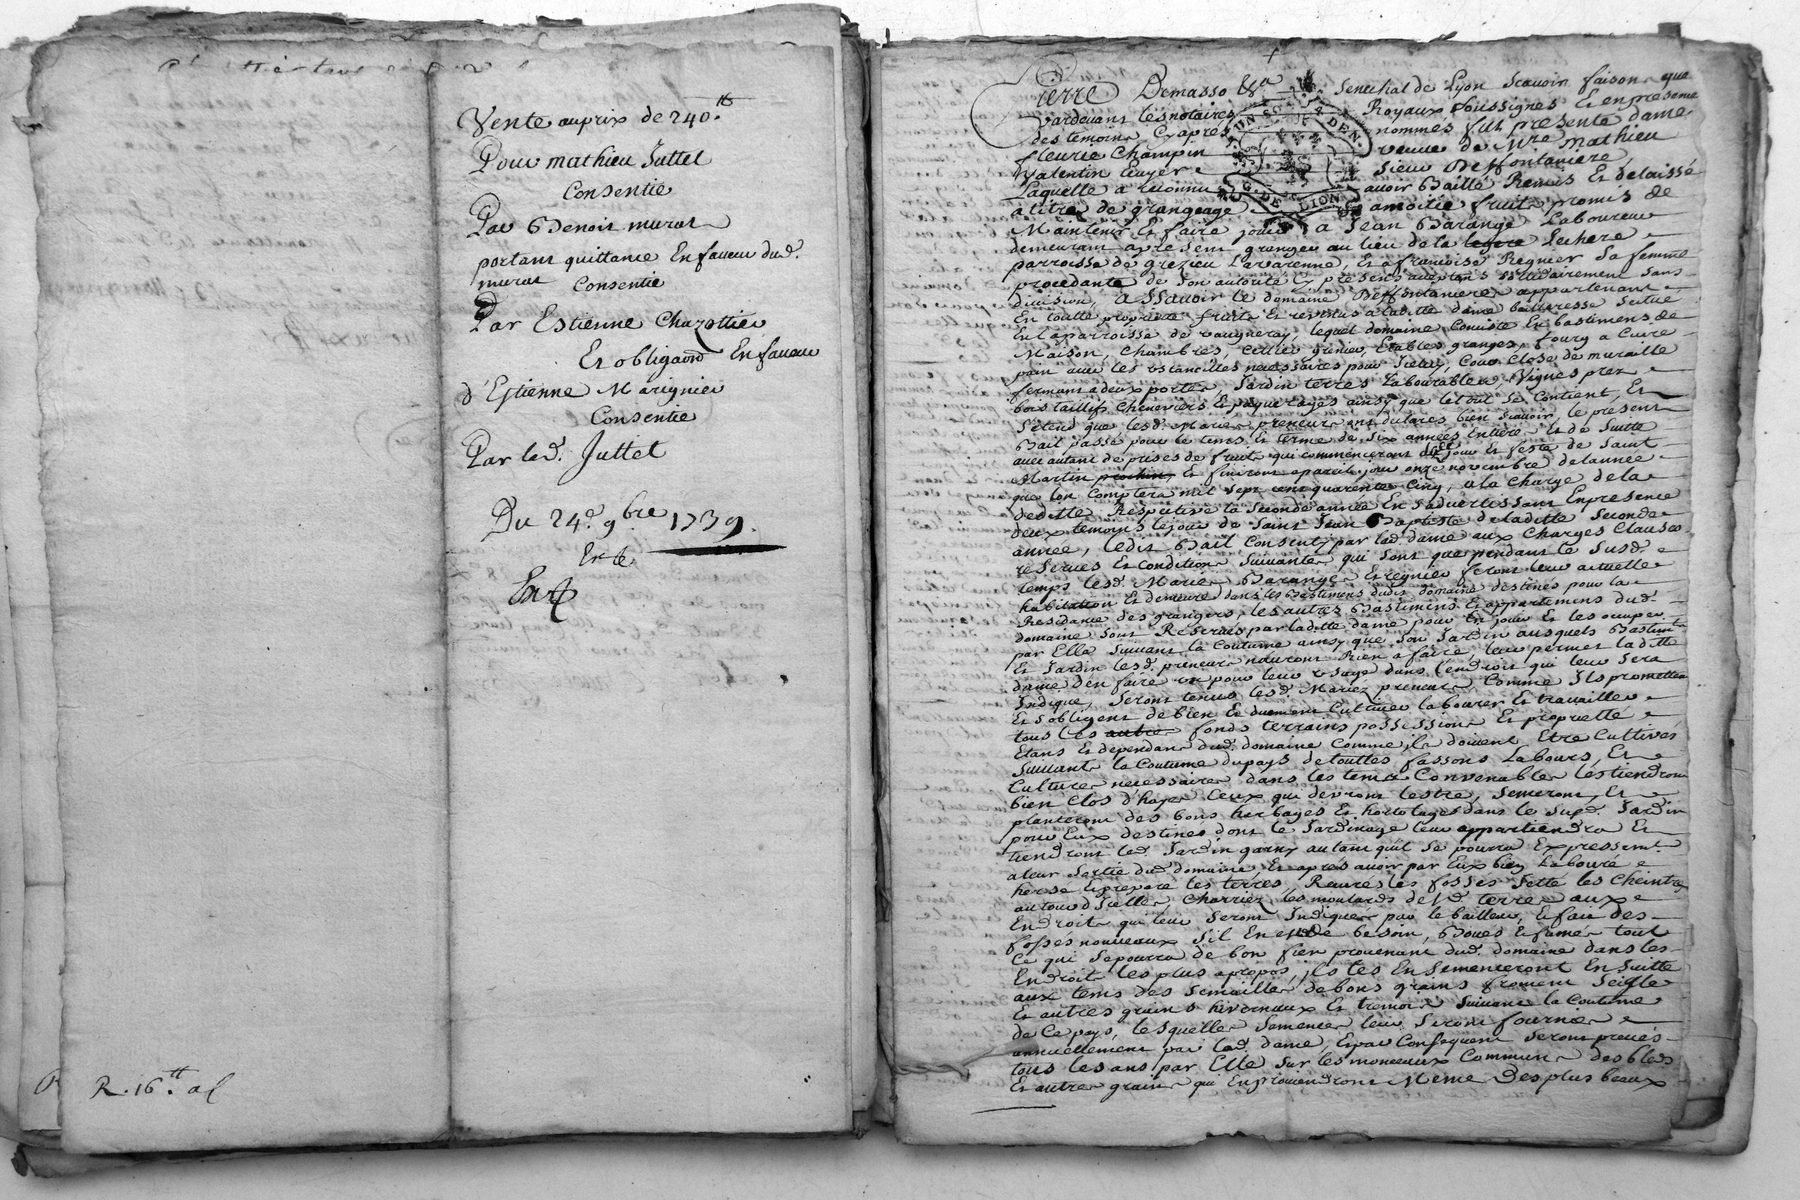 Vente au prix de 240.tt
Pour mathieu Juttet
Consentie
Par Benoit murat
portant quittance En faveur dud.
murat Consentie
Par Estienne Chazottier
Et obligaon En faveur
d'Estienne Marignier
Consentie
Par led. Juttet
Du 24e. 9bre 1739.
R. 16.tt
Pierre Demasso &a Senechal de Lyon Scavoir faisons que
pardevant les notaires Royaux soussignes Et en presence
des temoins Cy apres nommés fut presente dame
fleurie Champin veuve de Mre Mathieu
Valentin Ecuyer Sieur Deffontaniere
Laquelle a reconnu avoir Baillé Remis Et delaissé
a titre de grangeage a moitie fruits promis de
Maintenir Et faire jouir a Jean Barange Laboureur
demeurant a present granger au lieu de la Lechere
parroisse de grezieu Lavarenne, Et a francoise Regnier Sa femme
procedante de Son autorité Cy presents acceptans Solidairement Sans
division, a Scavoir le domaine Deffontaniere appartenant
En toutte proprieté fruits Et revenus a laditte dame bailleresse Scitué
En la parroisse de vaugneray, lequel domaine Consiste En bastimens de
Maison, Chambres, Cellier grenier, Etables granges, fourg a Cuire
pain avec les ustancilles necessaires pour Icelluy, Cour Close de muraille
fermant a deux portes, Jardin terres Labourables, Vignes prez
bois taillifs Cheneviers Et paquerages ainsy que le tout Se Contient, Et
S'étend que lesd. Mariez preneurs ont declarés bien Scavoir, le present
Bail passé pour le tems Et terme de Six années Entiere Et de Suitte
avec autant de prises de fruits qui commenceront jour Et feste de Saint
Martin prochin, Et finiront a pareil jour onze novembre de l'année
que lon Comptera mil Sept cent quarente Cinq, a la Charge de la
deditte Respective la Seconde année En S'advertissant En presence
deux temoins le jour de Saint Jean Baptiste de laditte Seconde
année, ledit Bail Consenty par lad. dame aux Charges Clauses
reserves Et Conditions Suivantes qui Sont que pendant le Susd.
temps lesd. Mariez Barange Et regnier feront leur actuelle
habitation Et demeure dans les Bastimens dudit domaine destinés pour la
Residance des grangers, les autres Bastimens Et appartemens dud.
domaine Sont Reservés par laditte dame pour En jouir Et les occuper
par Elle Suivant la Coutume ainsy que Son Jardin ausquels Bastimts
Et Jardin lesd. preneurs n'auront Rien a faire, leur permet laditte
dame d'en faire un pour leur usage dans l'endroit qui leur Sera
Indiqué, Seront tenus lesd. Mariez preneurs, Comme Ils promettent
Et S'obligent de bien Et duement Cultiver labourer Et travailler
tous les autres fonds terrains possessions Et proprietté
Etans Et dependans dud. domaine Comme ils doivent Etre Cultivés
Suivant la Coutume du pays de touttes fassons Labours, Et
Culture necessaires dans les tems Convenables les tiendront
bien Clos d'hayes Ceux qui devront l'estre, Semeront, Et
planteront des bons herbages Et hortolages dans le Susd. Jardin
pour Eux destinés dont le Jardinage leur appartiendra Et
tiendront led. Jardin garny autant qu'il Se pourra Expressemt.
a leur Sortie dud. domaine Et aprés avoir par Eux bien Labouré
herse Et preparé les terres, Recuré les fossés Jetté les Cheintres
au tour d'Icelles, Charriez les moulards desd. terres aux
Endroits qui leur Seront Indiquer par le bailleur, Et fait des
fossés nouveaux S'il En est de besoin, Boués Et fumés tout
Ce qui Se pourra de bon fien provenant dud. domaine dans les
Endroits les plus apropos, ils les Ensemenceront En Suitte
aux tems des Semailles de bons grains froment Seigle
Et autres grains hivernaux Et tremois Suivant la Coutume
de Ce pays, lesquelles Semences leur Seront fournies
annuellement par lad. dame, Et par Consequent Seront prevés
tous les ans par Elle Sur les monceaux Communs des bleds
Et autres grains qui En proviendront Meme Des plus beaux